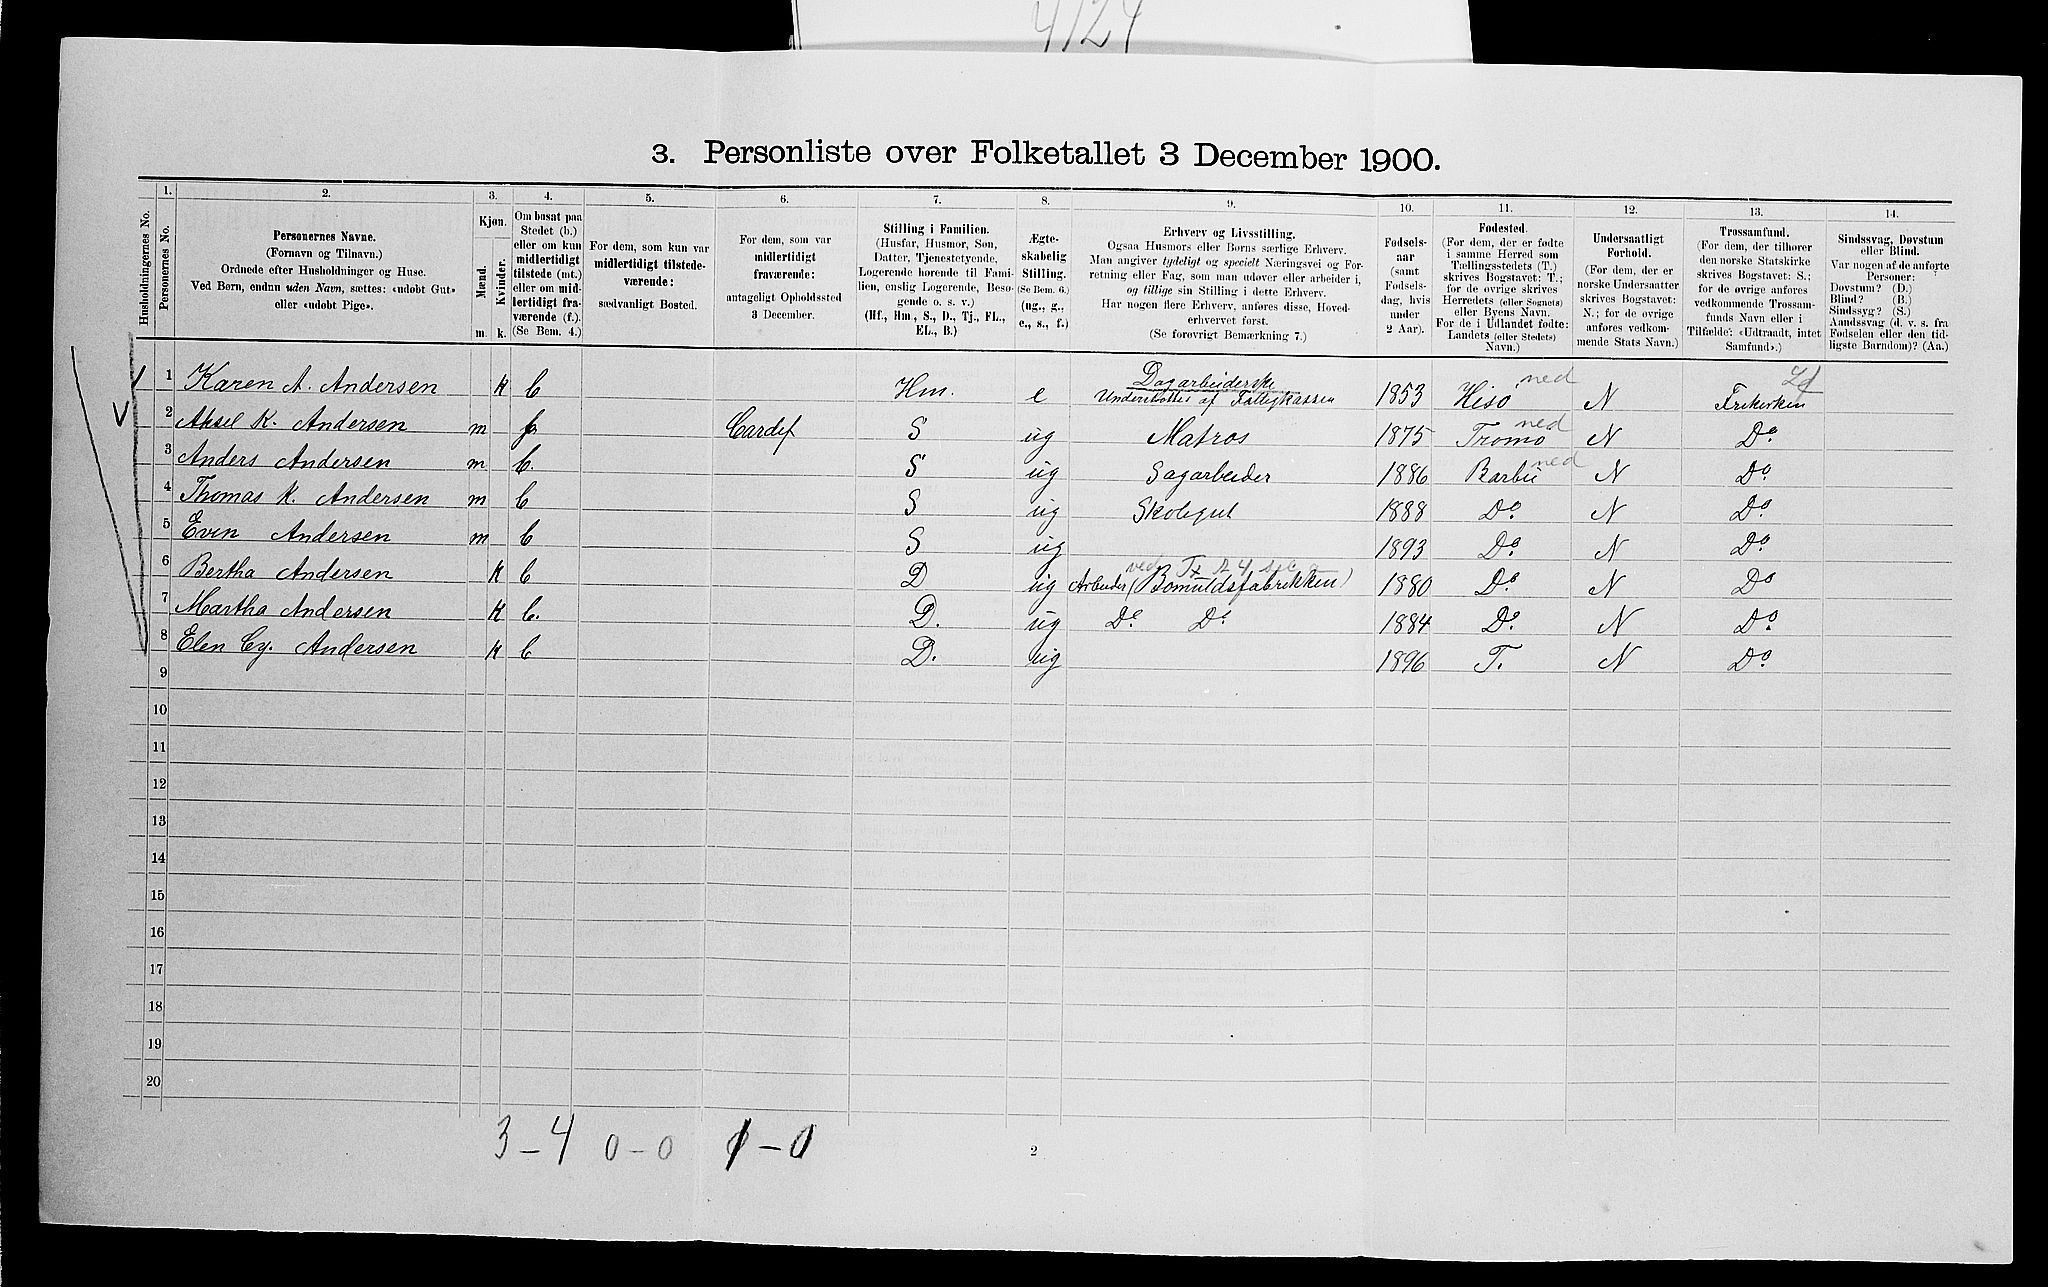 4124
3. Personliste over Folketallet 3 December 1900.
Husholdningernes No.
1. Personernes No.
2. Personernes Navne.
(Fornavn og Tilnavn.)
Ordnede efter Husholdninger og Huse.
Ved Børn, endnu uden Navn, sættes: «udøbt Gut»
eller «udøbt Pige».
3. Kjøn.
Mænd. Kvinder.
m. k.
4. Om bosat paa
Stedet (b.)
eller om kun
midlertidigt
tilstede (mt.)
eller om mid-
lertidigt fra-
værende (f.).
(Se Bem. 4.)
5. For dem, som kun var
midlertidigt tilstede-
værende:
sædvanligt Bosted.
6. For dem, som var
midlertidigt
fraværende:
antageligt Opholdssted
3 December.
7. Stilling i Familien.
(Husfar, Husmor, Søn,
Datter, Tjenestetyende,
Logerende hørende til Fami-
lien, enslig Logerende, Besø-
gende o. s. v.)
(Hf., Hm., S., D., Tj., FL.,
EL., B.)
8. Ægte-
skabelig
Stilling.
(Se Bem. 6.)
(ug., g.,
e., s., f.)
9. Erhverv og Livsstilling.
Ogsaa Husmors eller Børns særlige Erhverv.
Man angiver tydeligt og specielt Næringsvei og For-
retning eller Fag, som man udøver eller arbeider i,
og tillige sin Stilling i dette Erhverv.
Har nogen flere Erhverv, anføres disse, Hoved-
erhvervet først.
(Se forøvrigt Bemærkning 7.)
10. Fødsels-
aar
(samt
Fødsels-
dag, hvis
under
2 Aar).
11. Fødested.
(For dem, der er fødte
i samme Herred som
Tællingsstedets (T.)
skrives Bogstavet: T.;
for de øvrige skrives
Herredets (eller Sognets)
eller Byens Navn.
For de i Udlandet fødte:
Landets (eller Stedets)
Navn.)
12. Undersaatligt
Forhold.
(For dem, der er
norske Undersaatter
skrives Bogstavet:
N.; for de øvrige
anføres vedkom-
mende Stats Navn.)
13. Trossamfund.
(For dem, der tilhører
den norske Statskirke
skrives Bogstavet: S.;
for de øvrige anføres
vedkommende Trossam-
funds Navn eller i
Tilfælde: «Udtraadt, intet
Samfund».)
14. Sindssvag, Døvstum
eller Blind.
Var nogen af de anførte
Personer:
Døvstum? (D.)
Blind? (B.)
Sindssyg? (S.)
Aandssvag (d. v. s. fra
Fødselen eller den tid-
ligste Barndom)? (Aa.)
1 Karen A. Andersen k b Hm. e Dagarbeiderske Understøttes af Fattigkassen 1853 Hisø ned N Frikirken
2 Aksel K. Andersen m f Cardif S ug Matros 1875 Tromø ned N Do.
3 Anders Andersen m b. S ug Sagarbeider 1886 Barbu ned N Do.
4 Thomas K. Andersen m b S ug Skolegut 1888 Do. N Do.
5 Even Andersen m b S ug 1893 Do. N Do.
6 Bertha Andersen k b D ug Arbeider (ved Bomuldsfabrikken) 1880 Do N Do
7 Martha Andersen k b. D. ug Do. Do. 1884 Do. N Do.
8 Elen Cg. Andersen k b D. ug 1896 T. N Do.
9
10
11
12
13
14
15
16
17
18
19
20
3-4 0-0 1-0
2